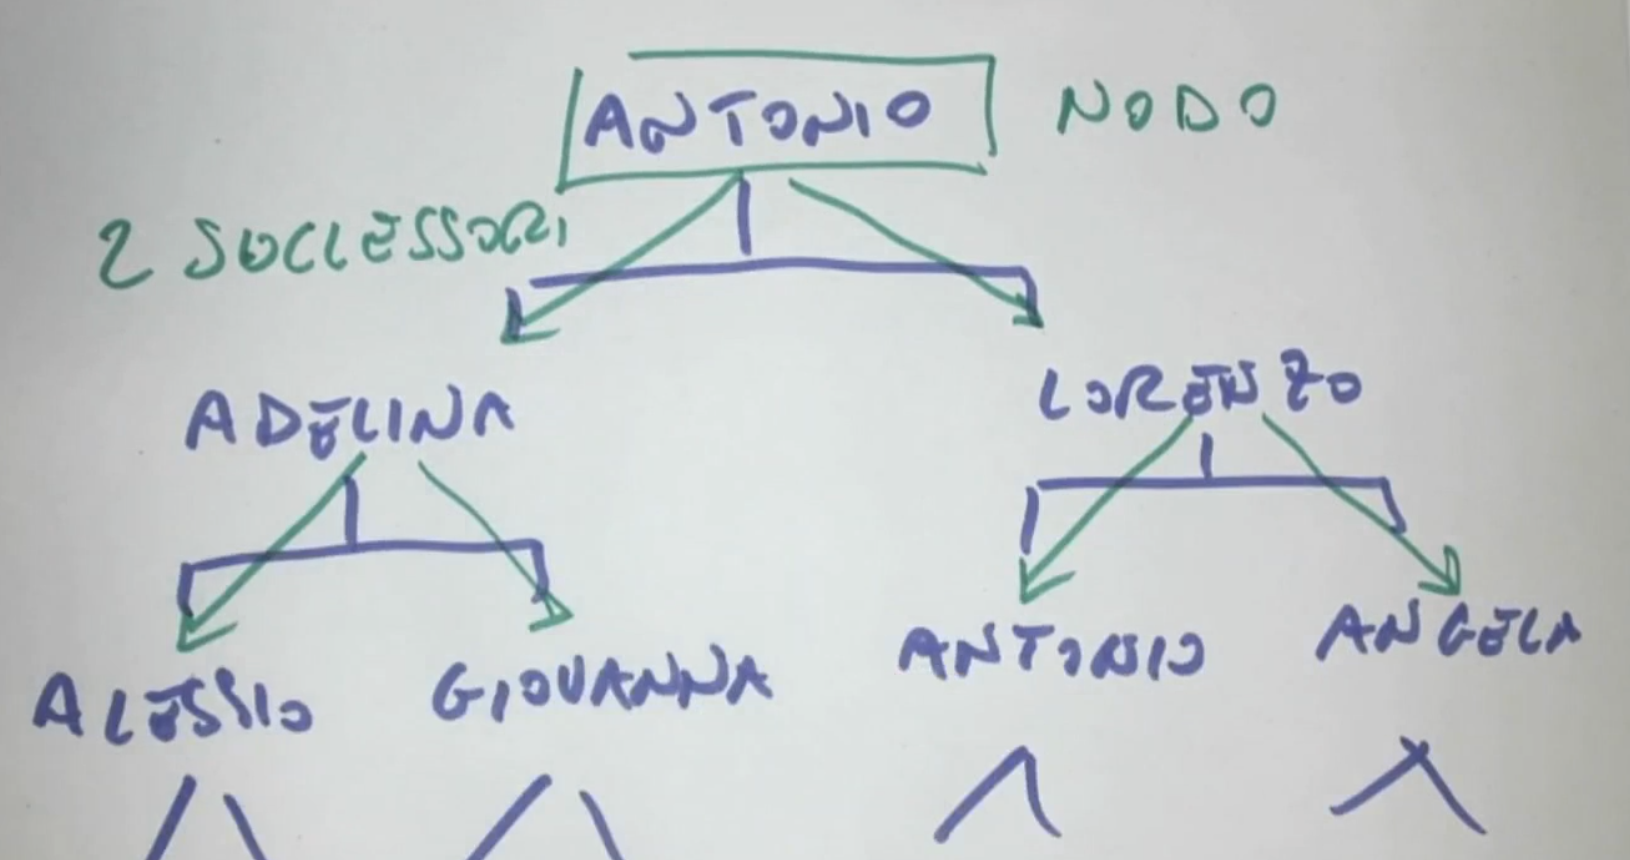 ANTONIO NODO
2 SUCCESSORI
ADELINA LORENZO
ALESSIO GIOVANNA ANTONIO ANGELA